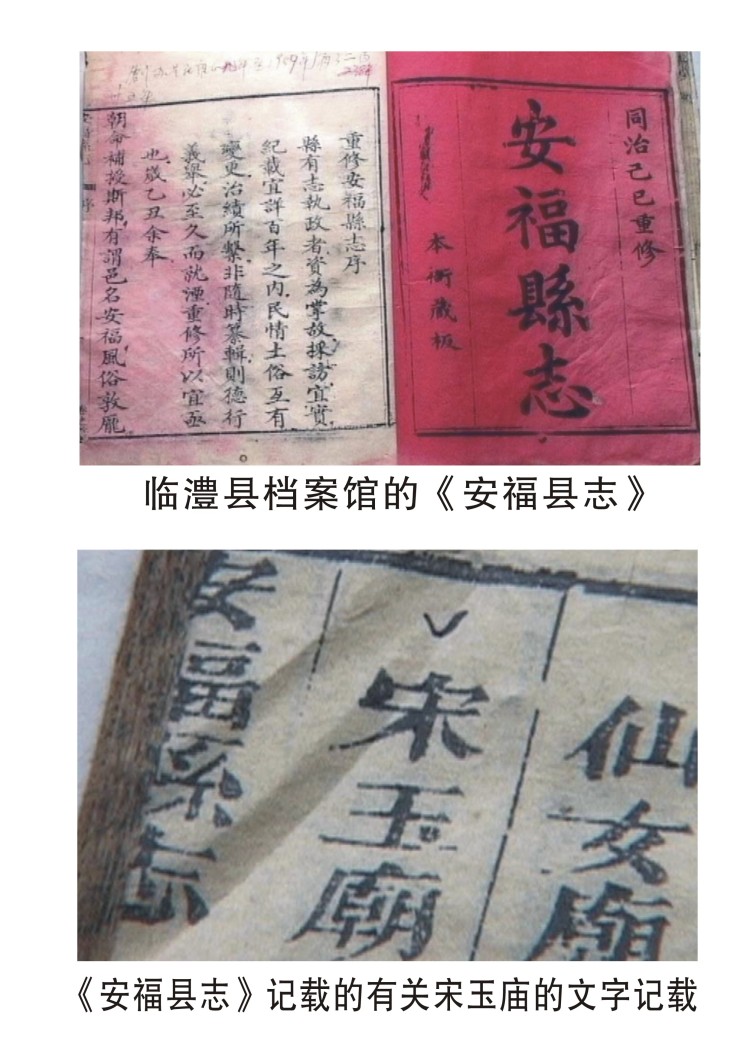 同治己巳重修
安福縣志
本衙藏板
重修安福縣志序
縣有志執政者資為掌故採訪宜實
紀載宜詳百年之內民情土俗互有
變更治績所繫非隨時纂輯則德行
義舉必至久而就湮重修所以宜亟
也歲乙丑余奉
朝命補授斯邦有謂邑名安福風俗敦龐
临澧县档案馆的《安福县志》
仙女廟
宋玉廟
安福縣志
《安福县志》记载的有关宋玉庙的文字记载